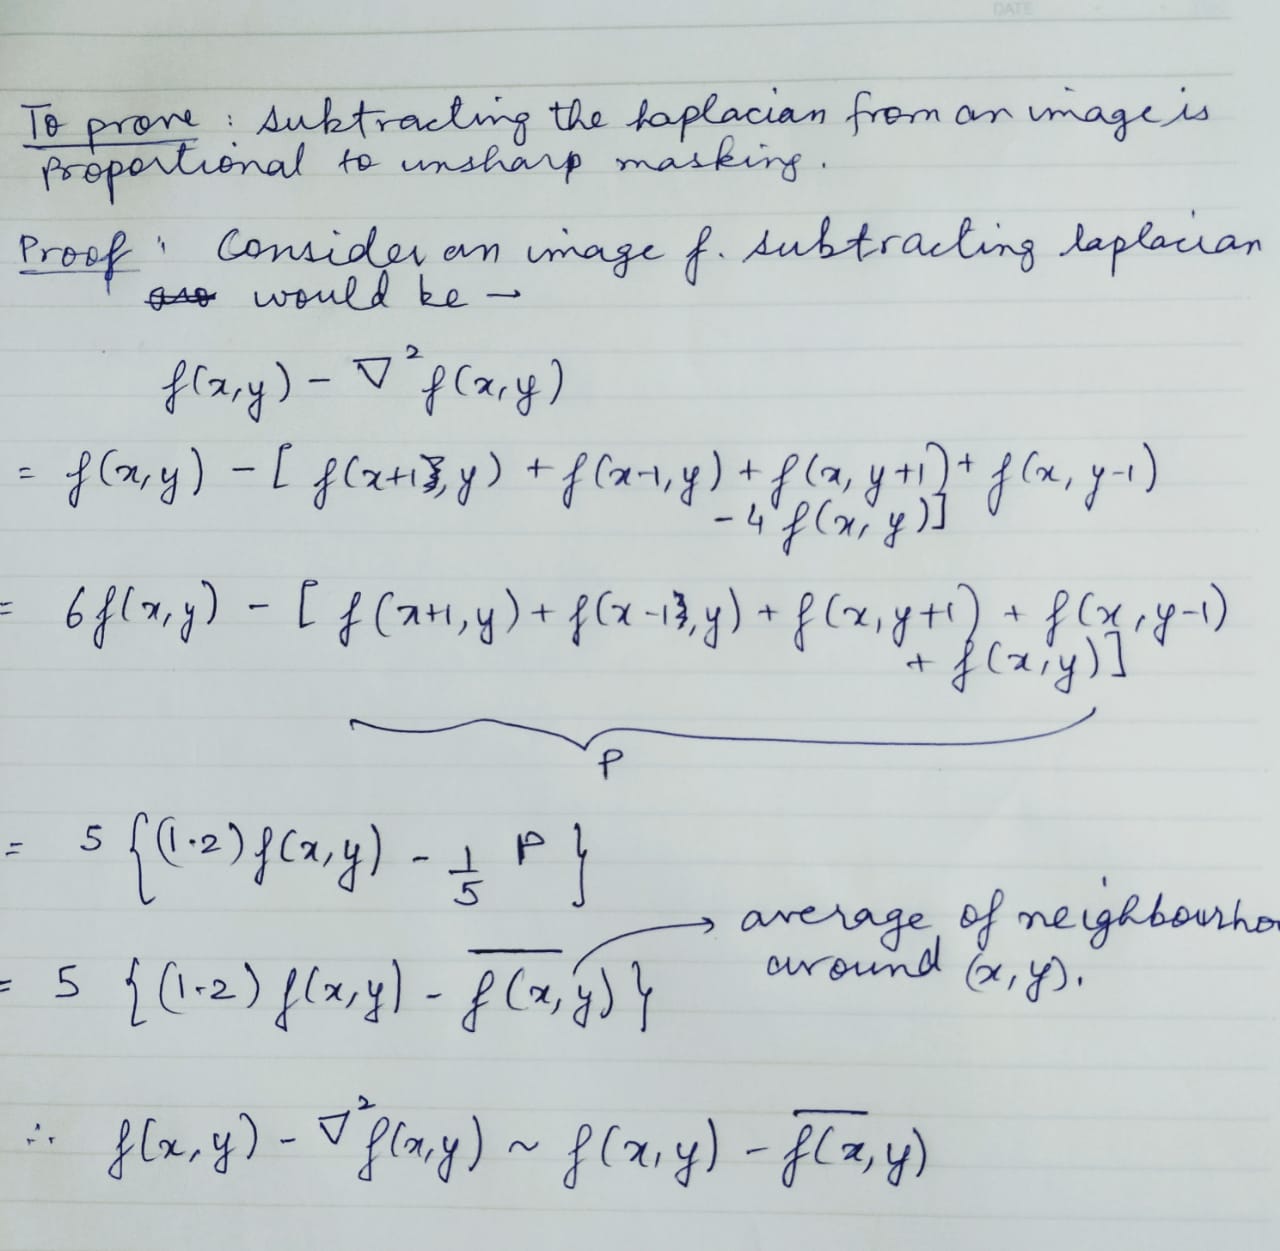 DATE
To prove : Subtracting the laplacian from an image is
proportional to unsharp masking.
Proof : Consider an image f. subtracting laplacian
would be →
f(x,y) - ∇²f(x,y)
= f(x,y) - [ f(x+1,y) + f(x-1,y) + f(x,y+1) + f(x,y-1)
- 4f(x,y)]
= 6f(x,y) - [ f(x+1,y) + f(x-1,y) + f(x,y+1) + f(x,y-1)
+ f(x,y)]
P
= 5 {(1.2)f(x,y) - 1/5 P }
→ average of neighbourho
around (x,y).
= 5 {(1.2) f(x,y) - \overline{f(x,y)}}
∴ f(x,y) - ∇²f(x,y) ~ f(x,y) - \overline{f(x,y)}